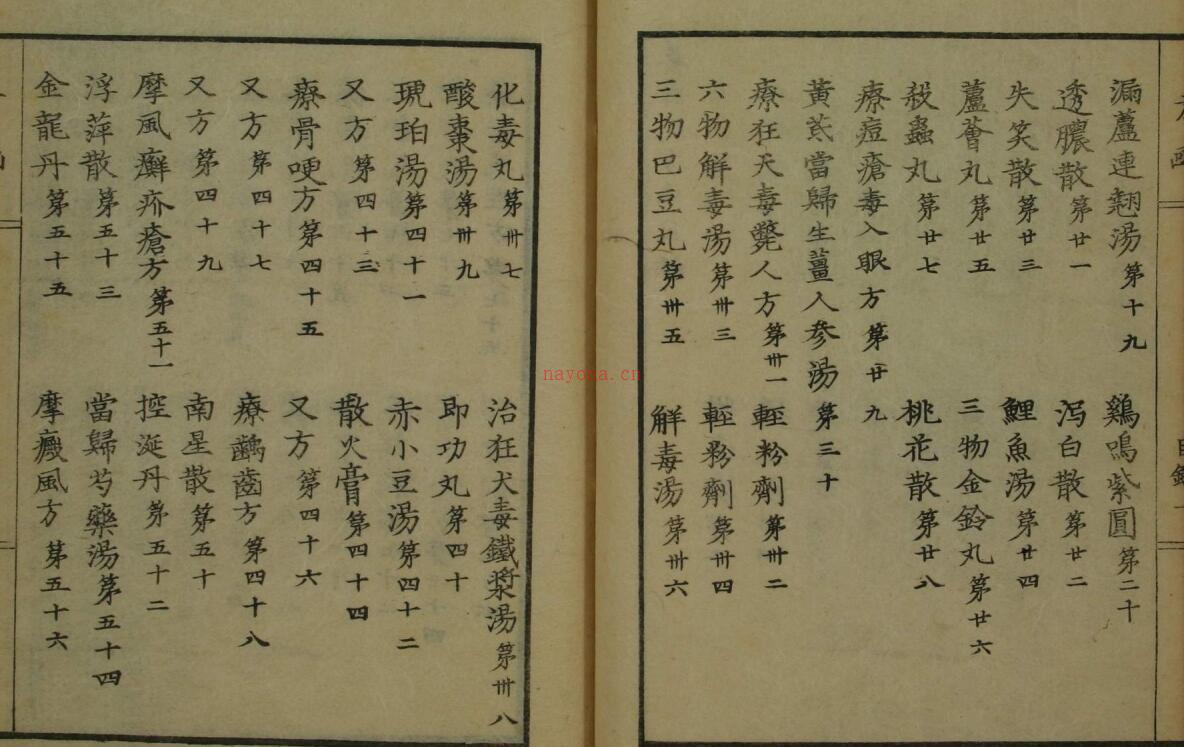 漏蘆連翹湯第十九 鷄鳴紫圓第二十
透膿散第廿一 瀉白散第廿二
失笑散第廿三 鯉魚湯第廿四
蘆薈丸第廿五 三物金鈴丸第廿六
殺蟲丸第廿七 桃花散第廿八
療痘瘡毒入眼方第廿九
黃芪當歸生薑人参湯第三十
療狂犬毒斃人方第卅一 輕粉劑第卅二
六物解毒湯第卅三 輕粉劑第卅四
三物巴豆丸第卅五 解毒湯第卅六
化毒丸第卅七 治狂犬毒鐵漿湯第卅八
酸棗湯第卅九 即功丸第四十
琥珀湯第四十一 赤小豆湯第四十二
又方第四十三 散火膏第四十四
療骨哽方第四十五 又方第四十六
又方第四十七 療齲齒方第四十八
又方第四十九 南星散第五十
摩風癬疥瘡方第五十一 控涎丹第五十二
浮萍散第五十三 當歸芍藥湯第五十四
金龍丹第五十五 摩癜風方第五十六
nayona.cn